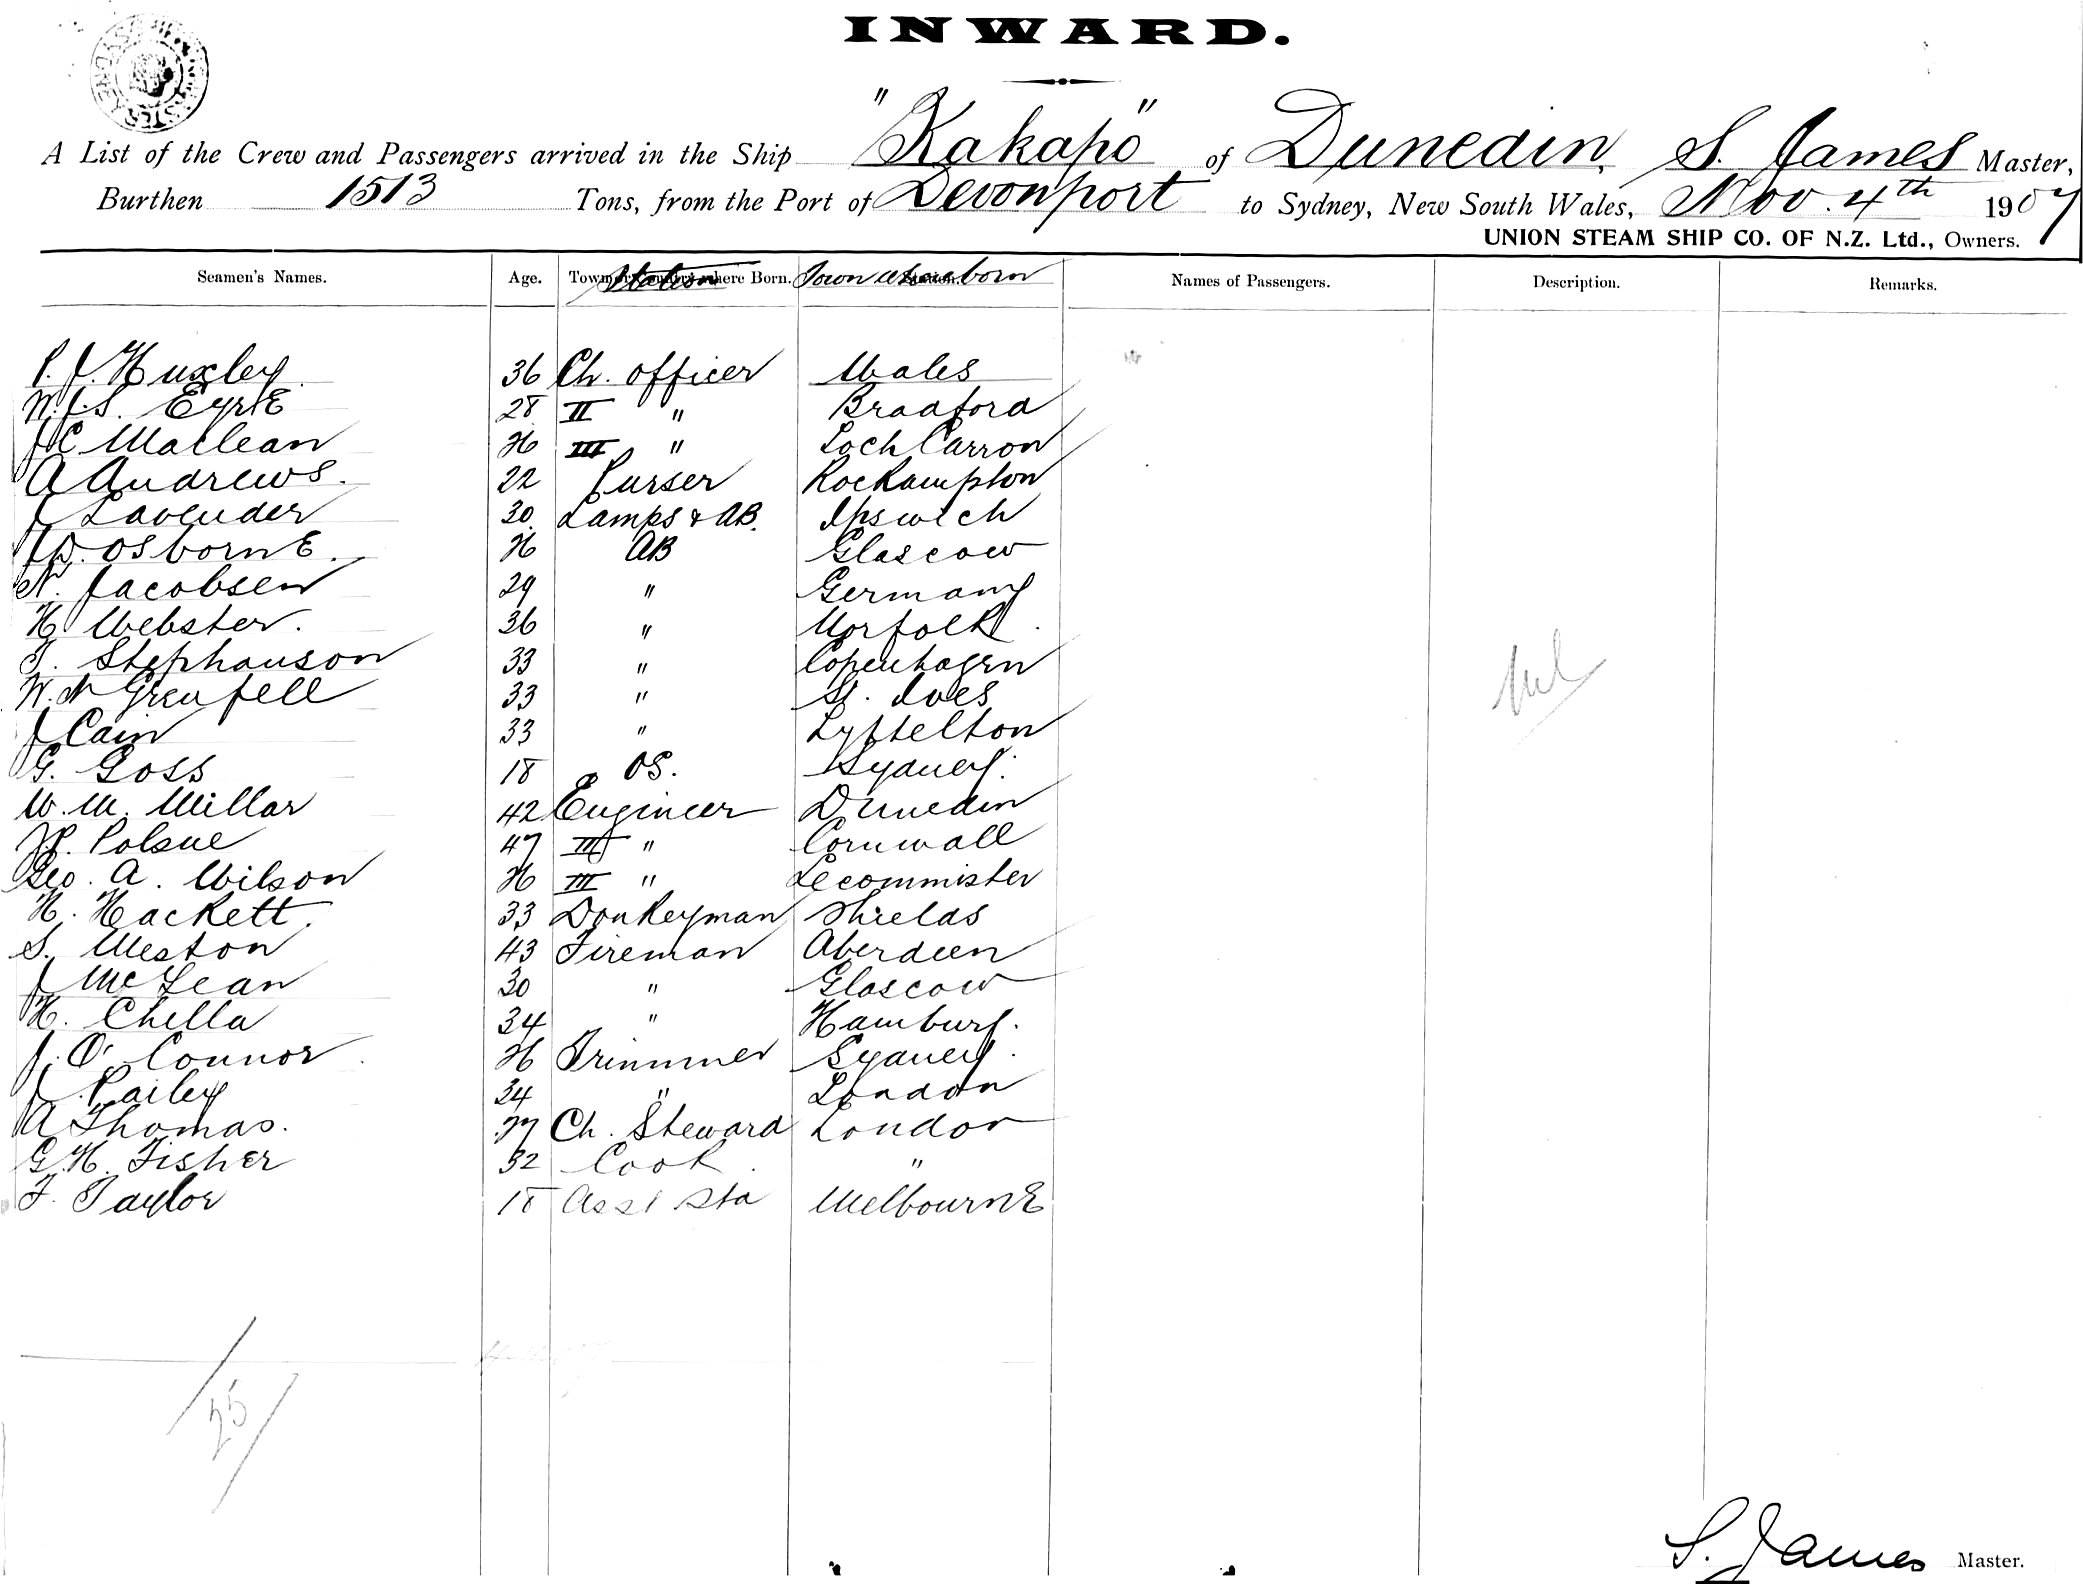 INWARD.
A List of the Crew and Passengers arrived in the Ship "Kakapo" of Dunedin, S. James Master,
Burthen 1513 Tons, from the Port of Devonport to Sydney, New South Wales, Nov. 4th 1907
UNION STEAM SHIP CO. OF N.Z. Ltd., Owners.
Seamen's Names. Age. Station Town where born Names of Passengers. Description. Remarks.
P. J. Huxley 36 Ch. Officer Wales
Eyre 28 II " Bradford
Maclean III " Loch Carron
A Andrews. 22 Purser Rockampton
J Lavender 30 Lamps & AB. Ipswich
Osborne. AB Glascow
N. Jacobsen 29 " Germany
H Webster. 36 " Norfolk
Stephanson 33 " Copenhagen
W. N Grenfell 33 " St. Ives
J Cain 33 " Lyttelton
G. Goss 18 OS. Sydney.
W. M. Millar 42 Engineer Dunedin
Polsue 47 " Cornwall
Geo. A. Wilson III " Lecommister
H. Hackett. 33 Donkeyman Shields
S. Weston 43 Fireman Aberdeen
J McLean 30 " Glascow
H. Chella 34 " Hamburg.
J. O'Connor Trimmer Sydney.
J 24 " London
A Thomas. Ch. Steward London
G. H. Fisher 32 Cook "
F. Taylor 18 Asst Std Melbourne
Nil
25
S. James Master.